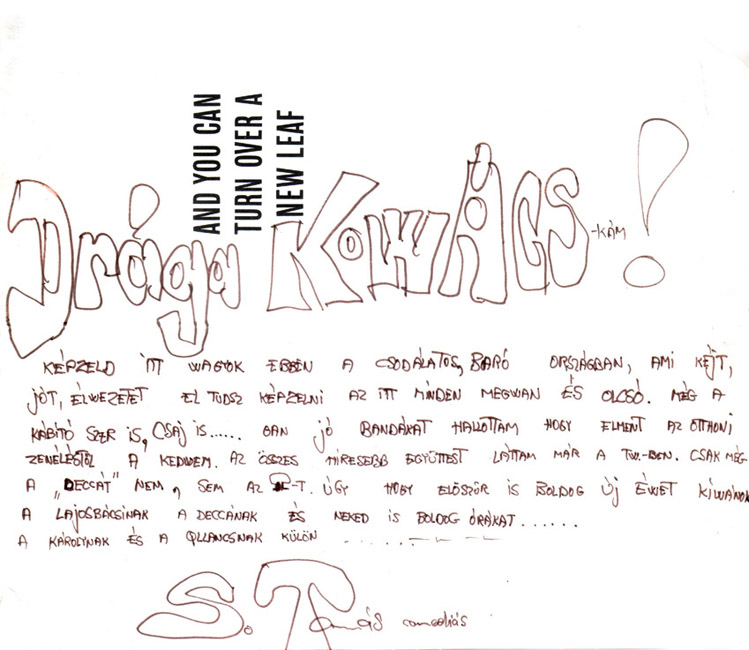 AND YOU CAN
TURN OVER A
NEW LEAF
Drága KOWÁCS-KÁM!
KÉPZELD ITT WAGYOK EBBEN A CSODÁLATOS, BARÓ ORSZÁGBAN, AMI KÉJT,
JÓT, ÉLWEZETET EL TUDSZ KÉPZELNI AZ ITT MINDEN MEGWAN ÉS OLCSÓ. MÉG A
KÁBÍTÓ SZER IS, CSAJ IS...... OAN JÓ BANDÁKAT HALLOTTAM HOGY ELMENT AZ OTTHONI
ZENÉLÉSTŐL A KEDWEM. AZ ÖSSZES HÍRESEBB EGYÜTTEST LÁTTAM MÁR A TW.-BEN. CSAK MÉG
A "DECCÁT" NEM, SEM AZ -T. ÚGY HOGY ELÖSZÖR IS BOLDOG ÚJ ÉWET KÍWÁNOK
A LAJOSBÁCSINAK A DECCÁNAK ÉS NEKED IS BOLDOG ÓRÁKAT.......
A KÁROLYNAK ÉS A QLLANCSNAK KÜLÖN
S. Tamás